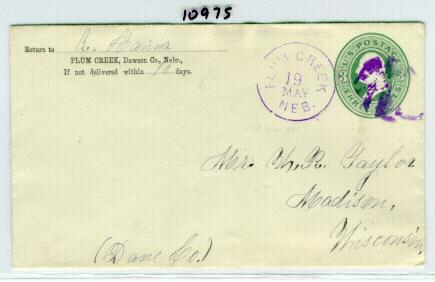 10975
Return to
PLUM CREEK, Dawson Co., Nebr.,
If not delivered within 10 days.
PLUM CREEK
19
MAY
NEB.
U.S. POSTAGE
THREE CENTS
Mrs W. R. Taylor
Madison,
Wisconsin,
(Dane Co.)